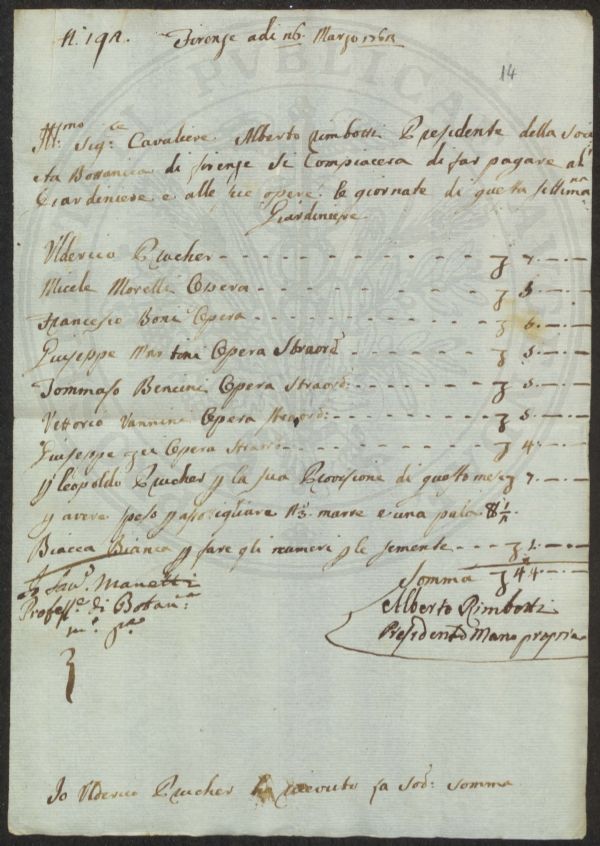 N. 192. Firenze adi 26. Marzo 1763
14
Ill:mo Sig:re Cavaliere Alberto Rimbotti Presidente della Soci
eta Bottanica di firenze Si Compiacera di far pagare al
Giardiniere e alle sue opere le giornate di questa settima:na
Giardiniere
Ulderico Prucher - - - 7. - . -
Micele Morelli Opera - - - 5. - . -
Francesco Boni Opera - - - 6. - . -
Giuseppe Martoni Opera Straord:
- - - 5. - . -
Tommaso Bencini Opera Straord: - - - 5. - . -
Vettorio Vannini Opera Straord: - - - 5. - . -
Giuseppe Opera Straord: - - - 4. - . -
p Leopoldo Prucher p la sua Provisione di questo mese 7. - . -
p avere speso p asotigliare marre e una pala
Biacca Bianca p fare gli numeri p le semente - - -
Somma 44. - . -
Sav:o Manetti
Profess:e di Botan:ca
m:o p:a
Alberto Rimbotti
Presidente Mano propria
Io Ulderico Prucher ho ricevuto la sod: somma